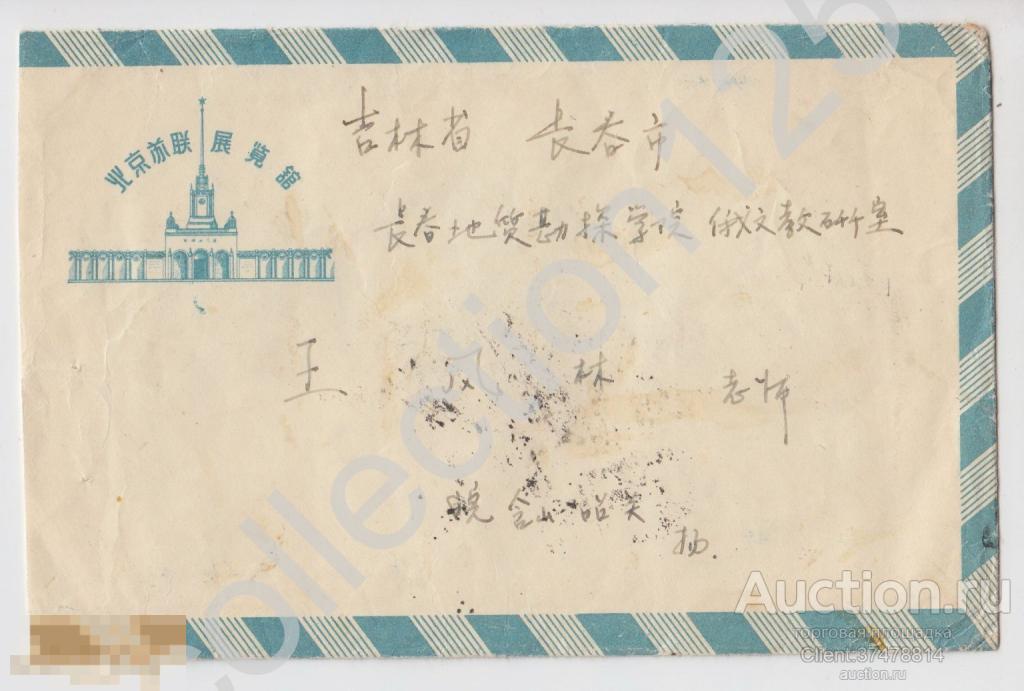 北京苏联展览馆
吉林省 长春市
长春地质勘探学院 俄文教研室
王 林 老师
杨.
collection125
Auction.ru
торговая площадка
Client:37478814
auction.ru